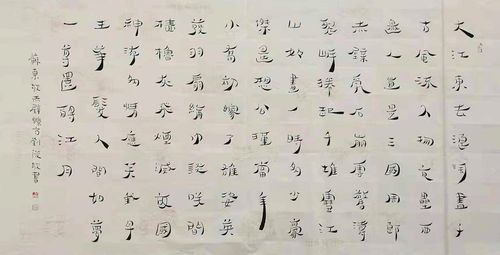 大江東去浪淘盡千
古風流人物故壘西
邊人道是三國周郎
赤壁亂石崩雲驚濤
裂岸捲起千堆雪江
山如畫一時多少豪
傑遙想公瑾當年
小喬初嫁了雄姿英
發羽扇綸巾談咲間
檣櫓灰飛煙滅故國
神遊多情應笑我早
生華髮人間如夢
一尊還酹江月
蘇東坡赤壁懷古劉書